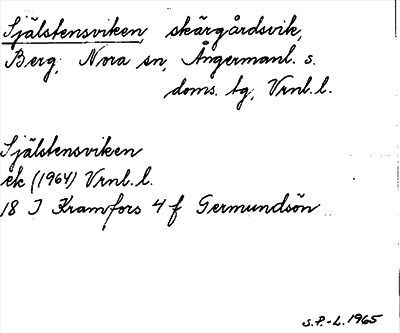 Själstensviken, skärgårdsvik,
Berg, Nora sn, Ångermanl. s.
doms. tg, Vrnl. l.
Själstensviken
ek (1964) Vrnl. l.
18 I Kramfors 4 f Germundsön
S.P.-L. 1965